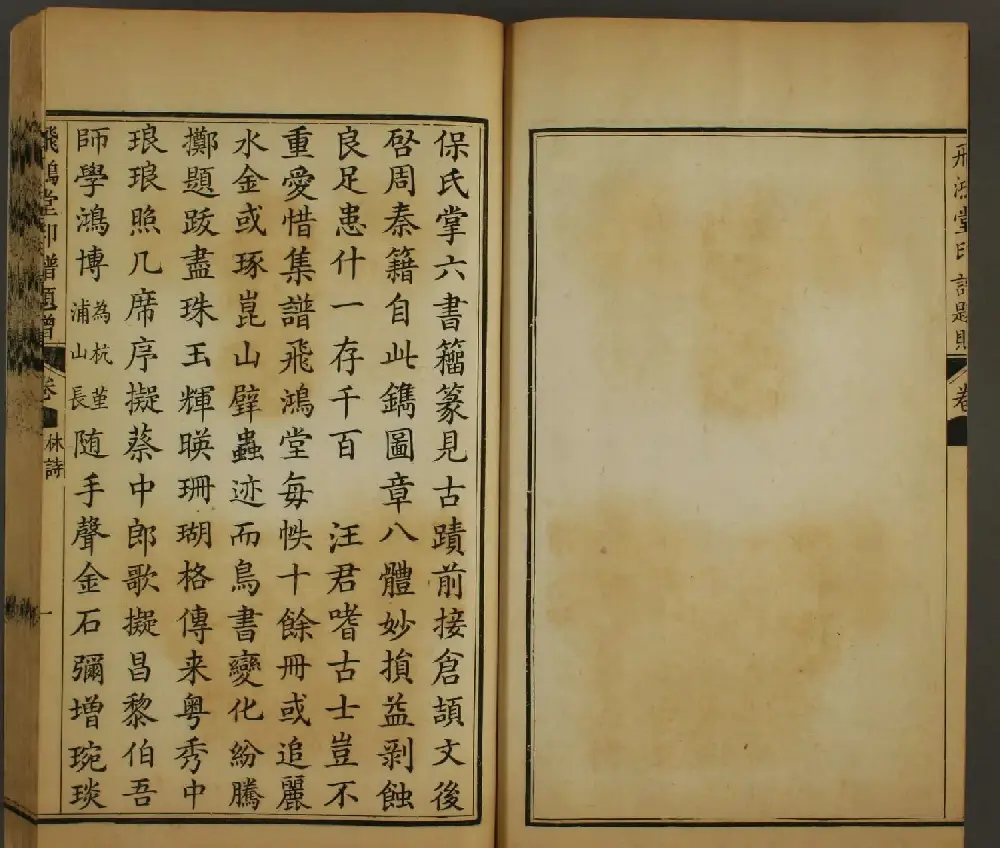 飛鴻堂印譜題贈 卷
保氏掌六書籀篆見古蹟前接倉頡文後
啓周秦籍自此鐫圖章八體妙損益剥蝕
良足患什一存千百 汪君嗜古士豈不
重愛惜集譜飛鴻堂每帙十餘冊或追麗
水金或琢崑山璧蟲迹而鳥書變化紛騰
擲題跋盡珠玉輝暎珊瑚格傳来粤秀中
琅琅照几席序擬蔡中郎歌擬昌黎伯吾
師學鴻博為杭堇浦山長随手聲金石彌增琬琰
飛鴻堂印譜題贈 卷 詩 一